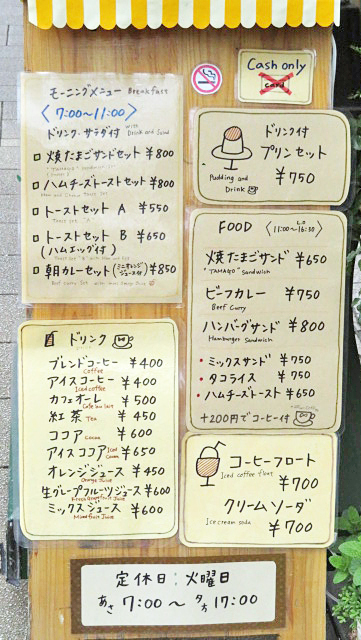 モーニングメニュー Breakfast
〈7:00〜11:00〉
ドリンク・サラダ付 with Drink and Salad
焼たまごサンドセット ¥800
"TAMAGO" Sandwich Set
ハムチーズトーストセット ¥800
Ham and Cheese Toast Set
トーストセット A ¥550
Toast Set "A"
トーストセット B ¥650
(ハムエッグ付)
Toast Set "B" with Ham and Egg
朝カレーセット(ミニオレンジジュース付) ¥850
Beef Curry Set with mini Orange Juice
ドリンク
ブレンドコーヒー ¥400
Coffee
アイスコーヒー ¥400
Iced coffee
カフェオーレ ¥500
Cafe au lait
紅茶 Tea ¥450
ココア Cocoa ¥600
アイスココア Iced Cocoa ¥650
オレンジジュース ¥450
Orange Juice
生グレープフルーツジュース ¥600
Fresh Grapefruit Juice
ミックスジュース ¥600
Mixed fruit Juice
Cash only
card
ドリンク付
プリンセット
¥750
Pudding and
Drink
FOOD 〈11:00〜16:30〉 L.O
焼たまごサンド ¥650
"TAMAGO" Sandwich
ビーフカレー ¥750
Beef Curry
ハンバーグサンド ¥800
Hamburger Sandwich
・ミックスサンド ¥750
・タコライス ¥750
・ハムチーズトースト ¥650
+200円でコーヒー付
コーヒーフロート
Iced coffee float
¥700
クリームソーダ
Ice cream soda
¥700
定休日:火曜日
あさ 7:00〜夕方 17:00